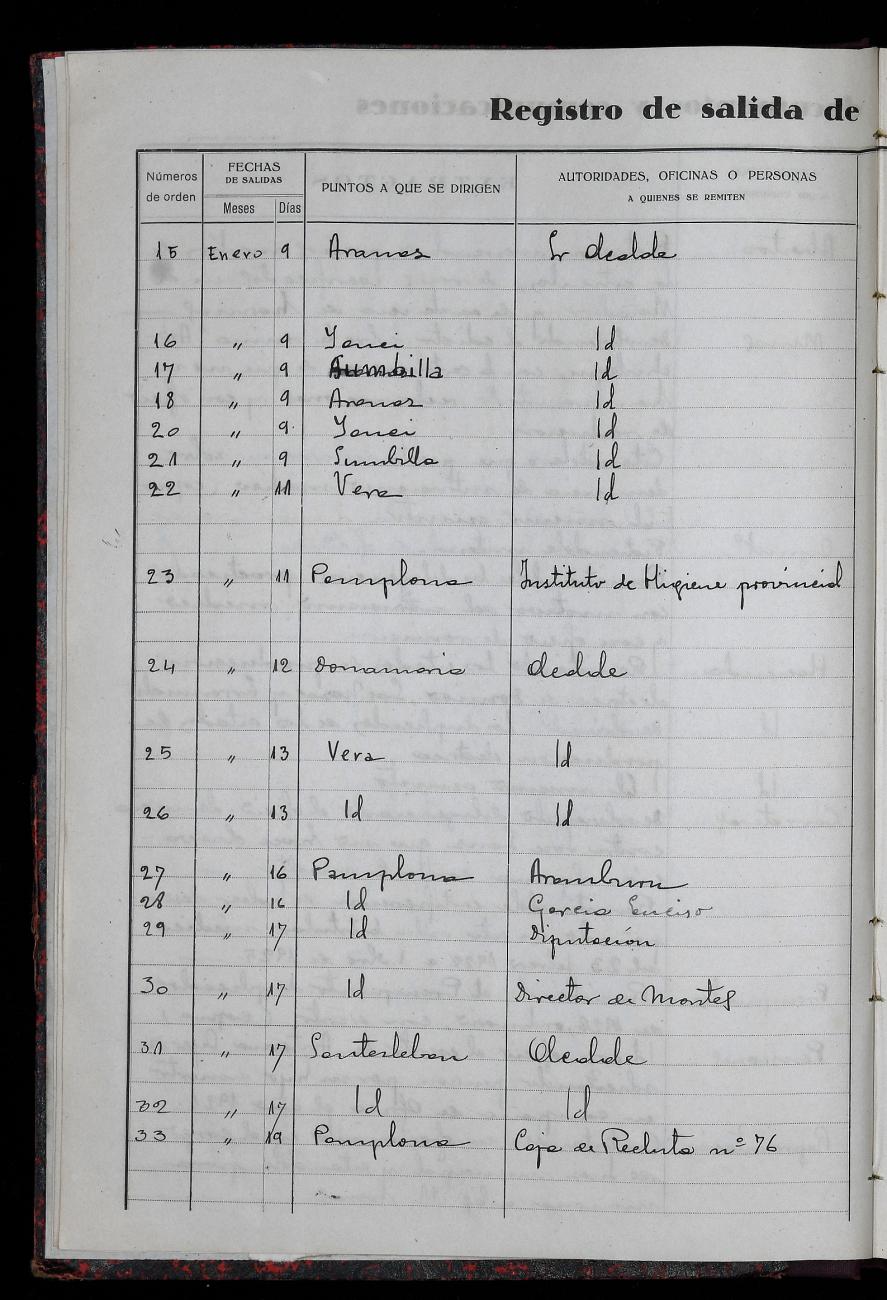 Registro de salida de
Números de orden FECHAS DE SALIDAS Meses Días PUNTOS A QUE SE DIRIGEN AUTORIDADES, OFICINAS O PERSONAS A QUIENES SE REMITEN
15 Enero 9 Aranaz Sr Alcalde
16 " 9 Yanci Id
17 " 9 Sumbilla Id
18 " 9 Aranaz Id
20 " 9 Yanci Id
21 " 9 Sumbilla Id
22 " 11 Vera Id
23 " 11 Pamplona Instituto de Higiene provincial
24 " 12 Donamaria Alcalde
25 " 13 Vera Id
26 " 13 Id Id
27 " 16 Pamplona Aramburu
28 " 16 Id Garcia Enciso
29 " 17 Id Diputación
30 " 17 Id Director de Montes
31 " 17 Santesteban Alcalde
32 " 17 Id Id
33 " 19 Pamplona Caja de Recluta nº 76